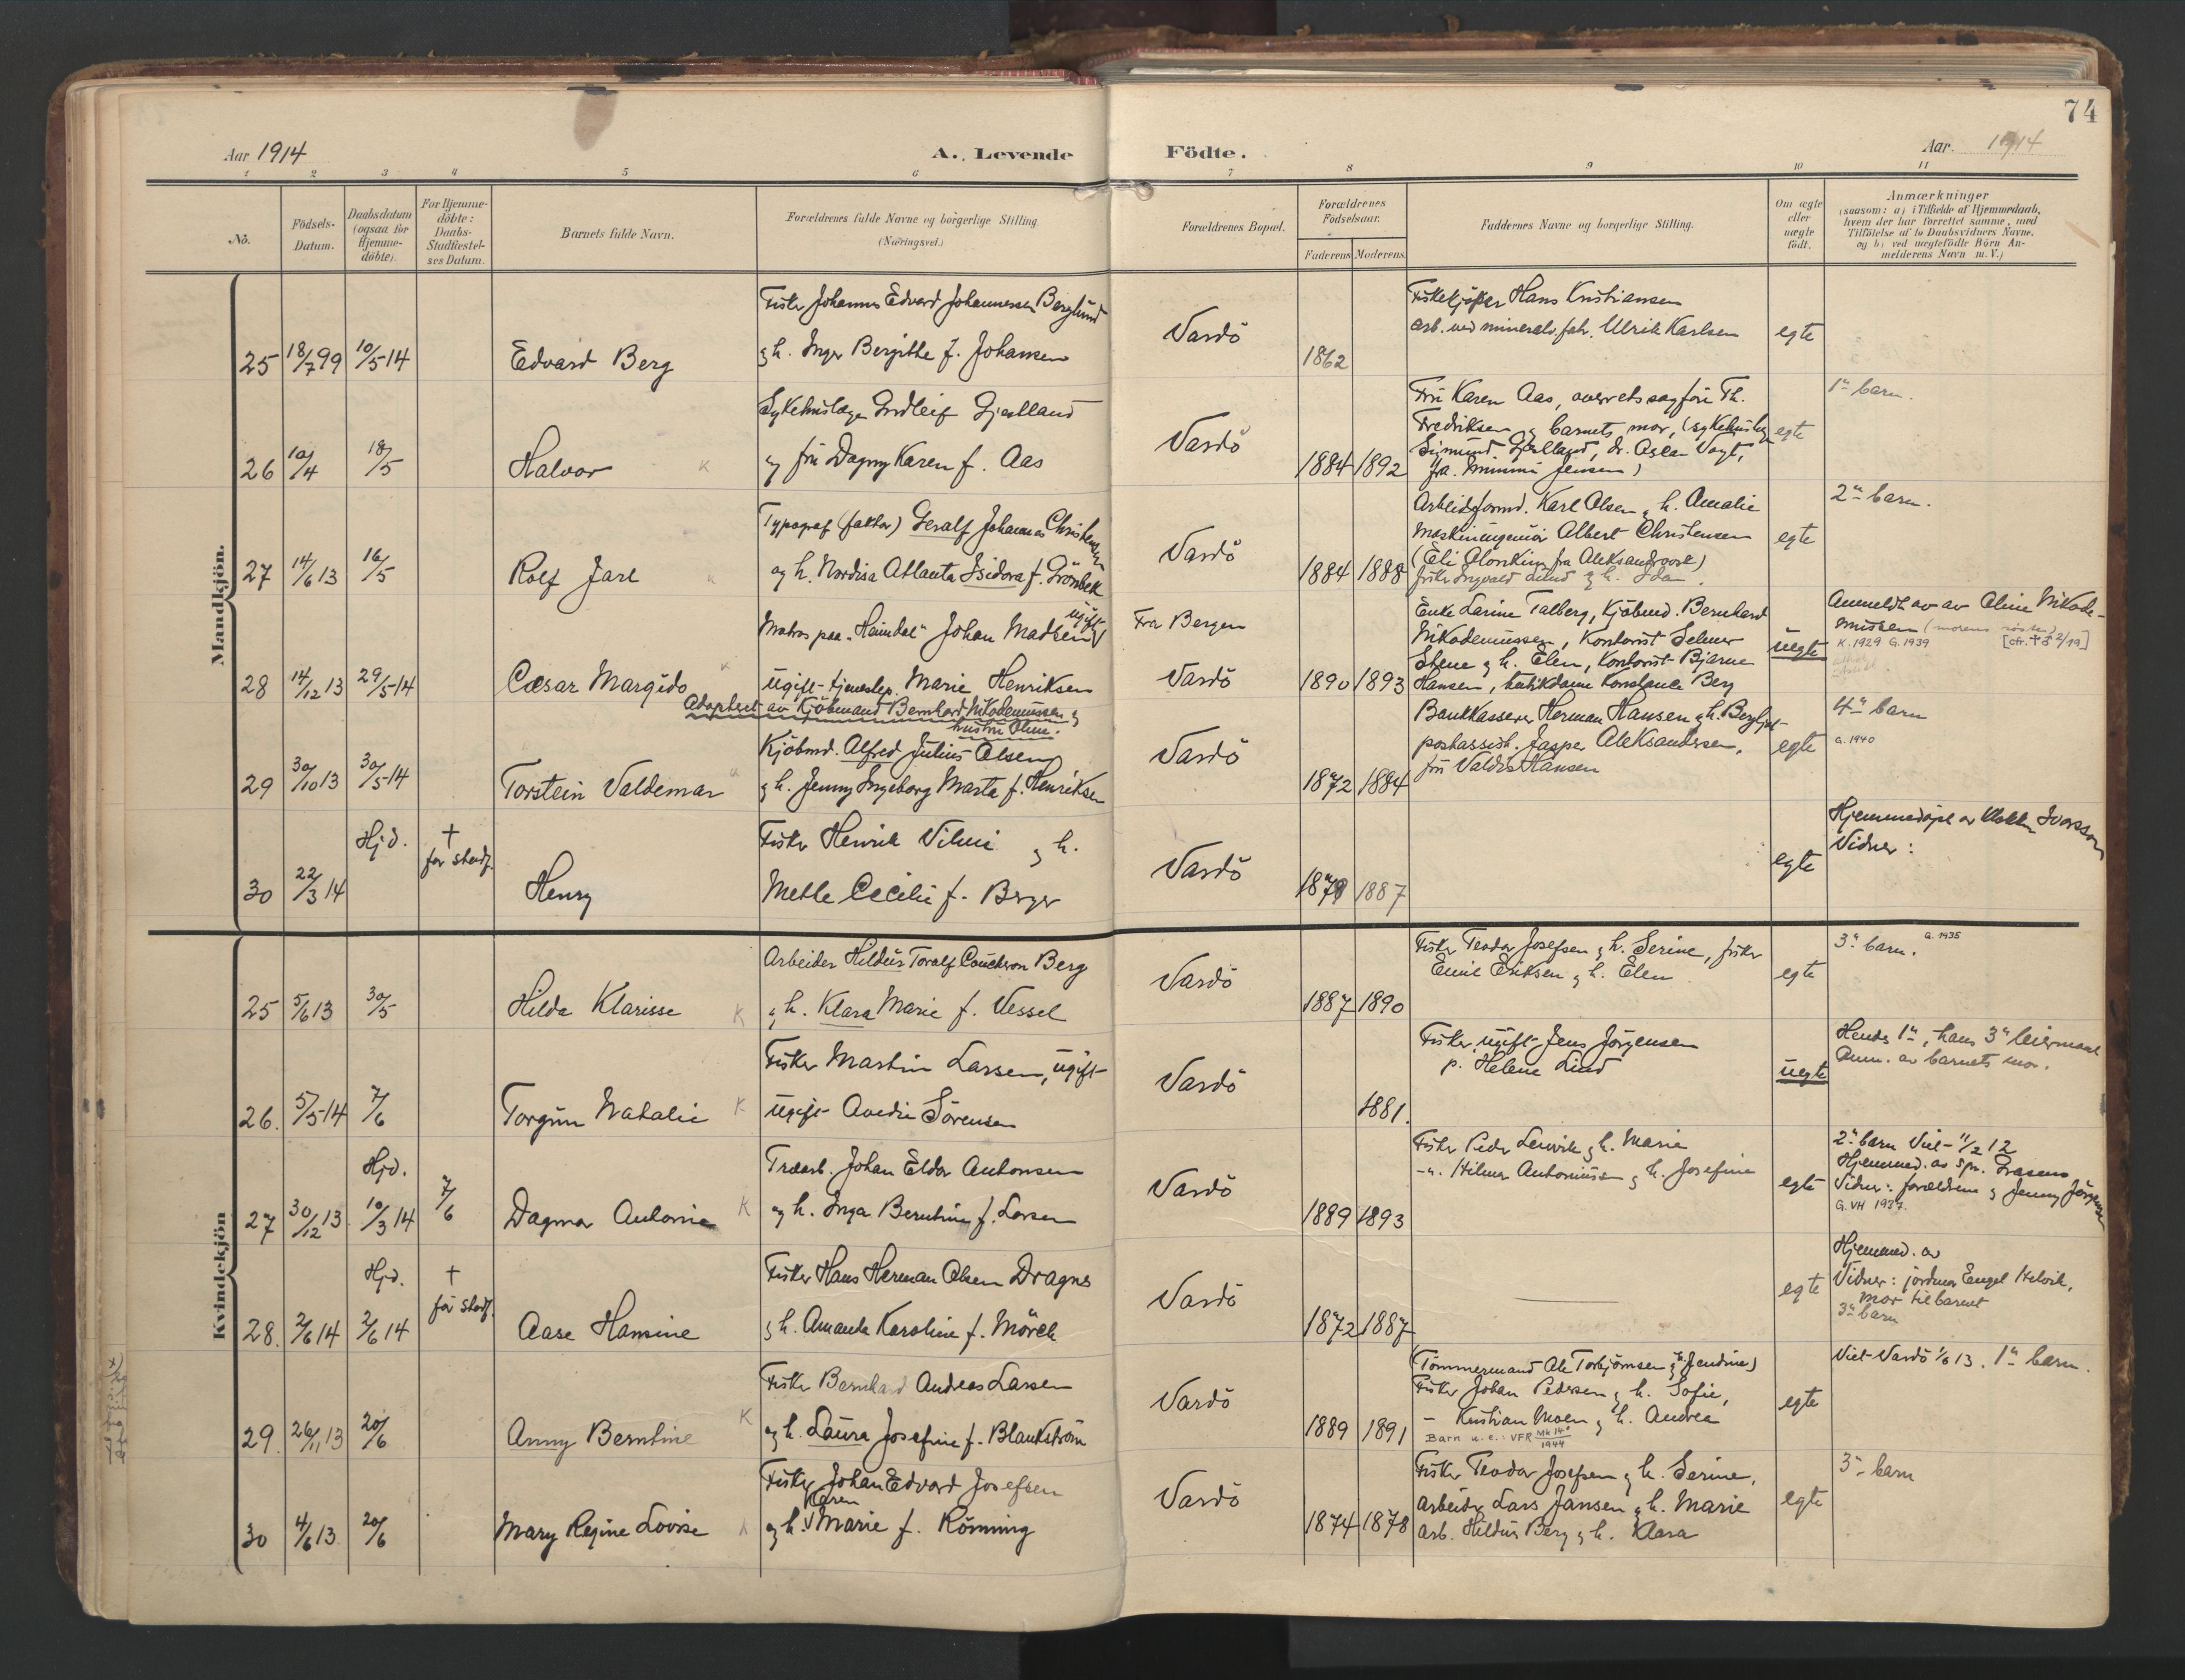 74
Aar 1914
A. Levende Födte.
Aar. 1914
1 2 3 4 5 6 7 8 9 10 11
No.
Födsels-Datum.
Daabsdatum (ogsaa for Hjemme-döbte).
For Hjemme-döbte: Daabs-Stadfæstel-ses Datum.
Barnets fulde Navn.
Forældrenes fulde Navne og borgerlige Stilling. (Næringsvei.)
Forældrenes Bopæl.
Forældrenes Födselsaar.
Faderens Moderens.
Faddernes Navne og borgerlige Stilling.
Om ægte eller uægte födt.
Anmærkninger
(saasom: a) i Tilfælde af Hjemmedaab, hvem der har forrettet samme, med Tilföielse af to Daabsvidners Navne. og b) ved uægtefödte Börn An-melderens Navn m. V.)
Mandkjön.
Fisker Johannes Edvard Johannessen Berglund
Fiskekjöper Hans Kristiansen
25 18/7 99 10/5-14 Edvard Berg
g h. Inger Bergithe f. Johansen
Vardö 1862
arb. ved minerals.fabr. Ulrik Karlsen
egte
Sykehuslæge Gudleif Gjestland
Fru Karen Aas, overretssagfører Th.
1ste barn.
26 10/4 18/5 Halvor K
og fru Dagny Karen f. Aas
Vardö 1884 1892
Fredriksen g barnets mor, (sykehuslæge
Sigmund Gjestland, dr. Aslan Vogt,
fra. Mimmi Jensen)
egte
Typograf (faktor) Geralf Johannes Christensen
Arbeidsformd. Karl Olsen g h. Amalie
2net barn.
27 14/6 13 16/5 Rolf Jarl K
og h. Nordisa Atlanta Isidora f. Grönbek
Vardö 1884 1888
Maskiningeniör Albert Christensen
egte
Matros paa "Heimdal" Johan Madsen ugift
Fra Bergen
Enke Larine Talberg, Kjöbmd. Bernhard
Anmeldt av av Oline Nikode-
mussen (morens söster)
[cfr. † 5 2/19]
K. 1929 G. 1939
28 14/12 13 29/5-14 Cæsar Margido K
ugift tjenestep. Marie Henriksen
Vardö 1890 1893
Nikodemussen, Kontorist Selmer
Stene g h. Elen, Kontorist Bjarne
Hansen, butikdame Konstance Berg
uegte
Adoptert av Kjöbmand Bernhard Nikodemussen g
hustru Oline.
Kjöbmd. Alfred Julius Olsen
Bankkasserer Herman Hansen g h. Bergljot
4de barn
G. 1940
29 30/10 13 30/5-14 Torstein Valdemar
g h. Jenny Ingeborg Marta f. Henriksen
Vardö 1872 1884
postassist. Jasper Aleksandersen,
fru Valdis Hansen
egte
Hjd. † før stadf.
Fisker Henrik Vilmi g h.
Hjemmedöpt av klokker Ivarsson
Vidner:
30 22/3 14 Henry
Mette Cecilie f. Berger
Vardö 1878 1887
egte
Kvindekjön
Arbeider Hildus Toralf Caucheron Berg
Fisker Teodor Josefsen g h. Serine, fisker
3de barn. G. 1935
25 5/6 13 30/5 Hilda Klarisse K
g h. Klara Marie f. Vessel
Vardö 1887 1890
Emil Eriksen g h. Elen
egte
Fisker Martin Larsen, ugift
Fisker, ugift Jens Jörgensen
Hendes 1ste, hans 3de leiermaal
Anm. av barnets mor.
26. 5/5-14 7/6 Torgun Natalie K
ugift Avedie Sörensen
Vardö 1881.
p. Helene Lind
uegte
Hjd.
Træarb. Johan Eldor Antonsen
Fisker Peder Lervik g h. Marie
2net barn Viet 11/2 12
Hjemmed. av spr. Grasmo
Vidner: forældrene g Jenny Jörgensen
G. VH 1937.
27 30/12 13 10/3 14 7/6 Dagmar Antonie K
og h. Inga Berntine f. Larsen
Vardö 1889 1893
-"- Hilmar Antoniussen g h. Josefine
egte
Hjd. † før stadf.
Fisker Hans Herman Olsen Dragnes
Hjemmed. av
Vidner: jordmor Engel Halvik,
mor til barnet
3de barn
28. 2/6 14 2/6 14 Aase Hansine
g h. Amanda Karoline f. Mörch
Vardö 1872 1887
egte
Fisker Bernhard Andreas Larsen
(Tömmermand Ole Torbjörnsen g h. Jendine)
Viet Vardö 1/6 13. 1ste barn.
29. 26/11 13 20/6 Anny Berntine K
og h. Laura Josefine f. Blankström
Vardö 1889 1891
Fisker Johan Pedersen g h. Sofie,
- Kristian Moen g h. Andrea
Barn u. e.: VFR Mk 14/1944
egte
Fisker Johan Edvard Josefsen
Fisker Teodor Josefsen g h. Serine,
3de barn
30 4/6 13 20/6 Mary Regine Lovise K
og h. Karen Marie f. Rönning
Vardö 1874 1878
Arbeider Lars Jansen g h. Marie
arb. Hildus Berg g h. Klara
egte